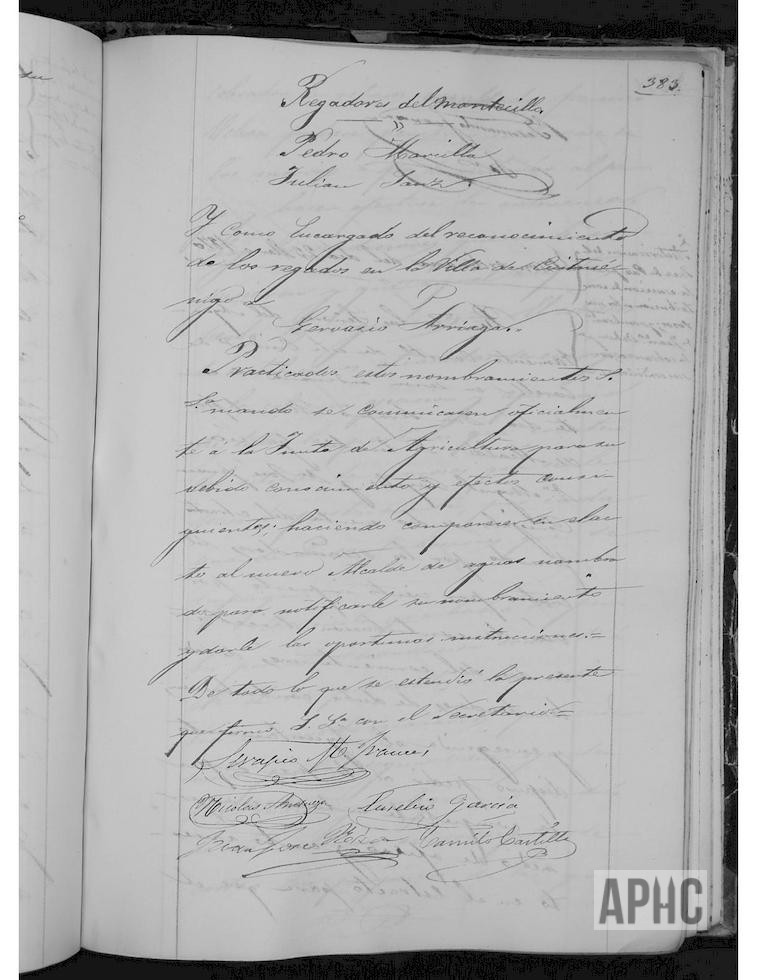 383.
Regadores del Montecillo
Pedro Marcilla
Julian Sanz
Y como Encargado del reconocimiento
de los regados en la Villa de Cintrué-
nigo á
Gervasio Arriaga.=
Practicados estos nombramientos S.
Sª. mandó se comunicasen oficialmen
te á la Junta de Agricultura para su
debido conocimiento y efectos consi-
guientes; haciendo comparecer en el ac
to al nuevo Alcalde de aguas nombra
do para notificarle su nombramiento
y darle las oportunas instrucciones.=
De todo lo que se estendió la presente
que firmó S. Sª con el Secretario.=
Serapio Mz
Nicolas
Aurelio Garcia
Juan Jose
Camilo Castilla
APHC